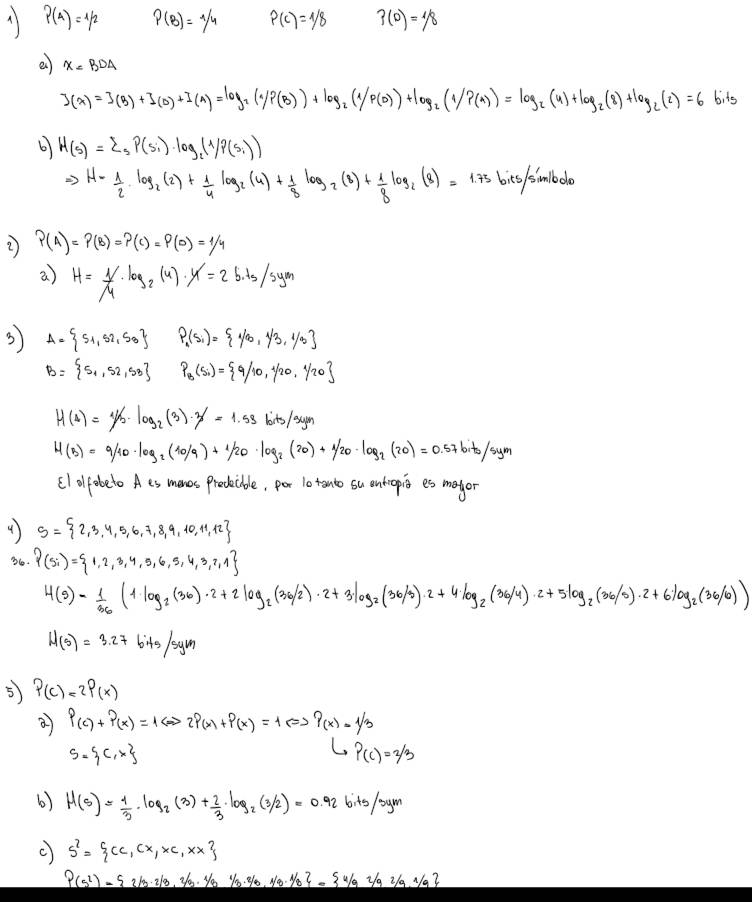 1) P(A)=1/2 P(B)=1/4 P(C)=1/8 P(D)=1/8
a) x = BDA
I(x) = I(B)+I(D)+I(A) = log₂(1/P(B)) + log₂(1/P(D)) + log₂(1/P(A)) = log₂(4)+log₂(8)+log₂(2) = 6 bits
b) H(s) = Σₛ P(si)·log₂(1/P(si))
⇒ H = 1/2·log₂(2) + 1/4 log₂(4) + 1/8 log₂(8) + 1/8 log₂(8) = 1.75 bits/símbolo
2) P(A)=P(B)=P(C)=P(D)=1/4
a) H = 1/4·log₂(4)·4 = 2 bits/sym
3) A={s1,s2,s3} P_A(si)={1/3,1/3,1/3}
B={s1,s2,s3} P_B(si)={9/10,1/20,1/20}
H(A) = 1/3·log₂(3)·3 = 1.58 bits/sym
H(B) = 9/10·log₂(10/9) + 1/20·log₂(20) + 1/20·log₂(20) = 0.57 bits/sym
El alfabeto A es menos Predecible, por lo tanto su entropía es mayor
4) S={2,3,4,5,6,7,8,9,10,11,12}
36·P(si)={1,2,3,4,5,6,5,4,3,2,1}
H(s) = 1/36 (1·log₂(36)·2+2log₂(36/2)·2+3·log₂(36/3)·2+4·log₂(36/4)·2+5log₂(36/5)·2+6·log₂(36/6))
H(s) = 3.27 bits/sym
5) P(c)=2P(x)
a) P(c)+P(x)=1⇔2P(x)+P(x)=1⇔P(x)=1/3
S={c,x} ↳ P(c)=2/3
b) H(s)=1/3·log₂(3)+2/3·log₂(3/2)=0.92 bits/sym
c) S²={cc,cx,xc,xx}
P(s²)={2/3·2/3, 2/3·1/3, 1/3·2/3, 1/3·1/3}={4/9,2/9,2/9,1/9}